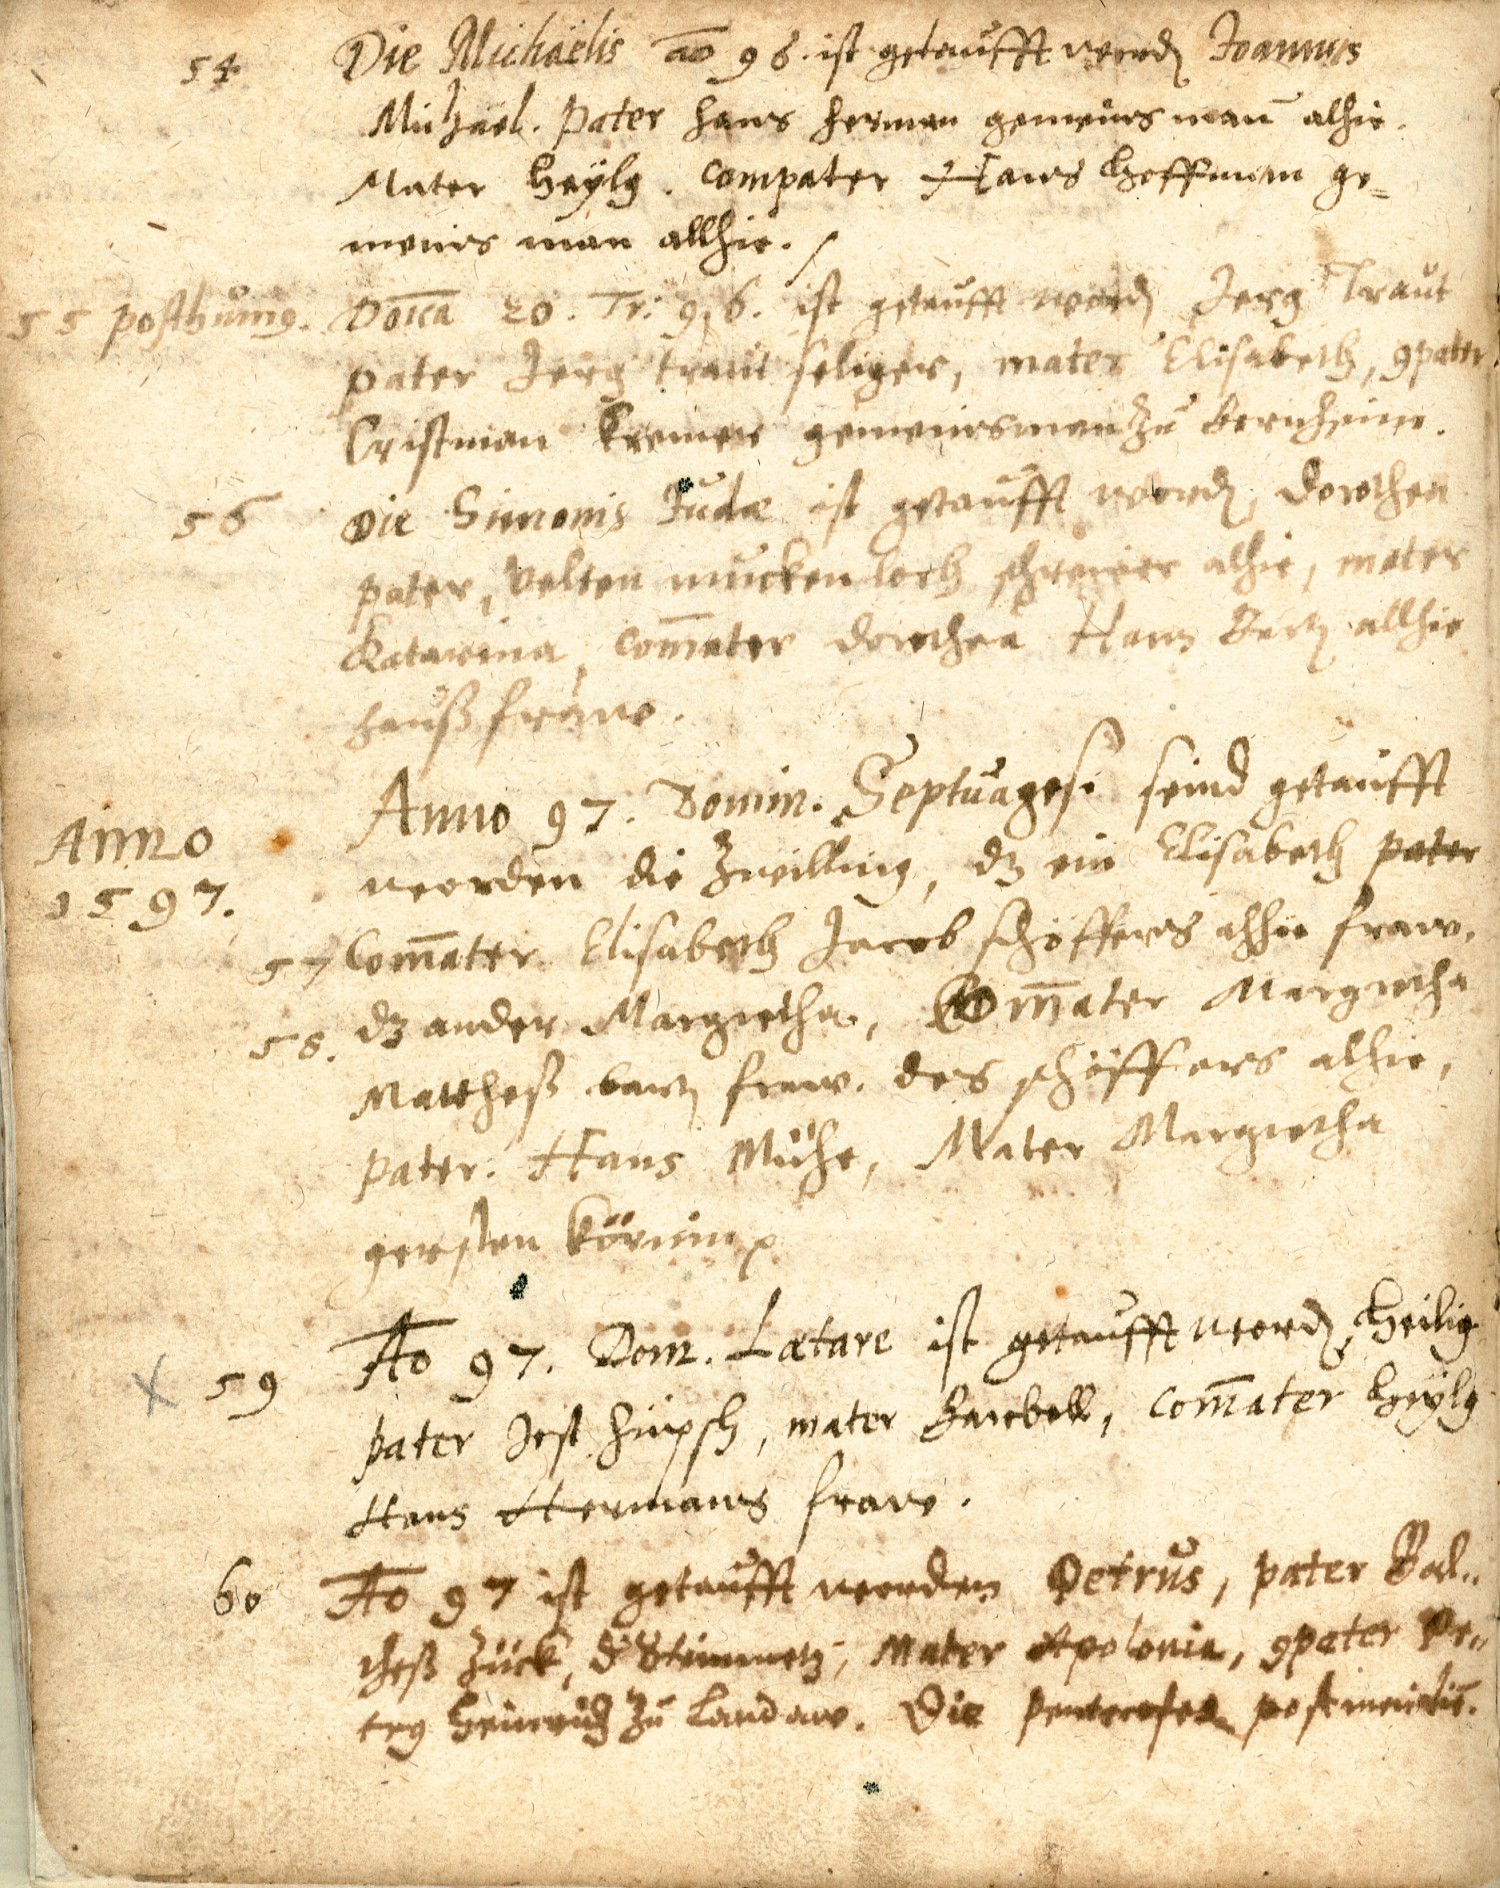 54. Die Michaëlis ao 96. ist getaufft word Joannes
Michael. Pater Hans Herman gemeinsman alhie.
Mater Heylg. Compater Hans Hoffman ge-
meins man allhie.
55 posthumg. Doica 20. Tr: 96. ist getaufft word Jerg Traut
pater Jerg traut seliger, mater Elisabeth, gpater
Cristman Kremer gemeinsman zu
56 Die Simonis Judæ ist getaufft word, Dorothea
pater, Velten muckenloch schreiner alhie, mater
Katarina, Comater Dorothea Hans allhie
haußfrawe.
Anno 1597.
Anno 97. Domin. Septuagesi seind getaufft
worden die Zwilling, dz ein Elisabeth pater
57 Comater Elisabeth Jacob schöffers alhie fraw.
58. dz ander Margretha, Comater Margretha
Mattheß fraw. des schöffers alhie,
pater. Hans Mühe, Mater Margretha
gersten körnin
59 Ao 97. Dom. Lætare ist getaufft word Heilig
pater Jost hüpsch, mater Barbell, Comater Heylg
Hans Hermans frawe.
60 Ao 97 ist getaufft worden Petrus, pater Bal-
theß Zück, d Steinmetz, Mater Apolonia, gpater Pe-
trg zu Landaw. Die